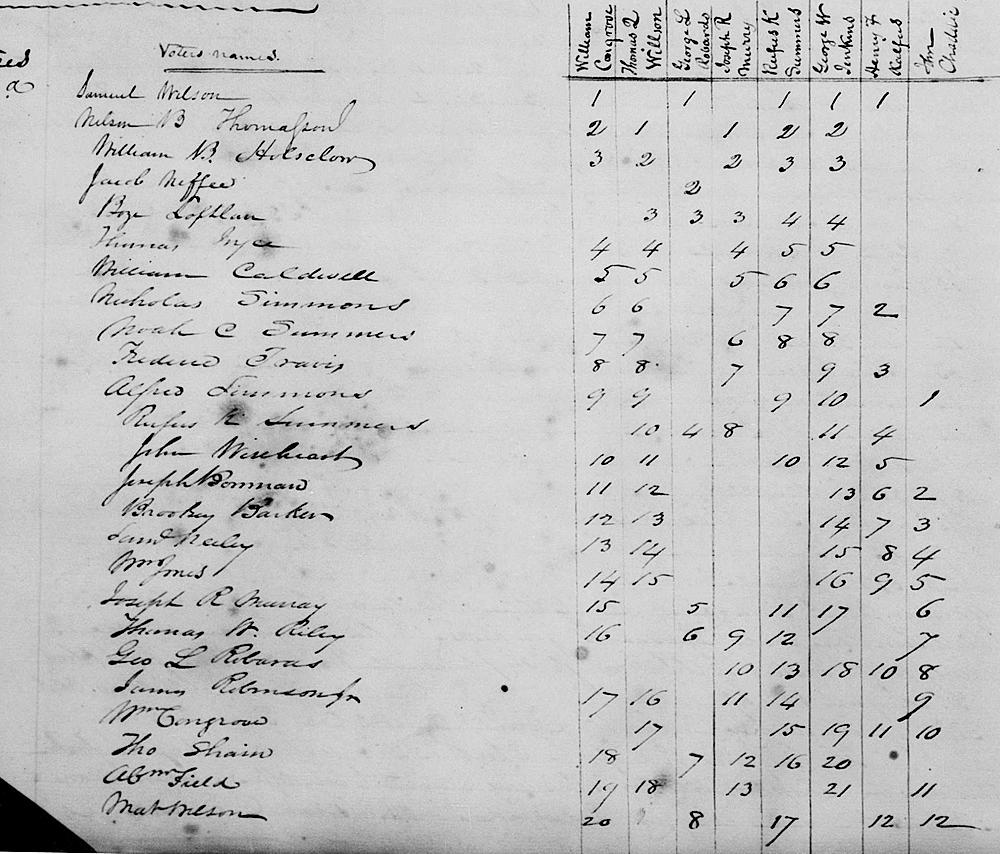 ses
a
Voters names.
William Congrove
Thomas Q Willson
George L Robards
Joseph R Murry
Rufus K Summers
George W Jenkins
Henry F Kalfus
Jhn Chrstlie
Samuel Wilson 1 1 1 1 1
Nelson B Thomasson 2 1 1 2 2
William B. Holsclow 3 2 2 3 3
Jacob Neffee 2
Boze 3 3 3 4 4
Thomas Inyce 4 4 4 5 5
William Caldwell 5 5 5 6 6
Nicholas Simmons 6 6 7 7 2
Noah C Summers 7 7 6 8 8
Frederic Travis 8 8 7 9 3
Alfred Simmons 9 9 9 10 1
Rufus K Summers 10 4 8 11 4
John Wiseheart 10 11 10 12 5
Joseph Bowman 11 12 13 6 2
Brooksy Barker 12 13 14 7 3
Saml Neeley 13 14 15 8 4
Wm Jones 14 15 16 9 5
Joseph R Murray 15 5 11 17 6
Thomas W. Riley 16 6 9 12 7
Geo L Robards 10 13 18 10 8
James Robinson Jr 17 16 11 14 9
Wm Congrove 17 15 19 11 10
Tho Shain 18 7 12 16 20
Abm Field 19 18 13 21 11
Mat Wilson 20 8 17 12 12